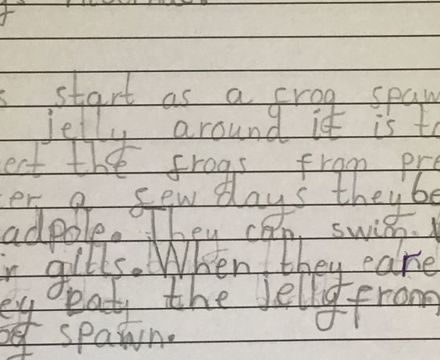 s start as a frog spaw
jelly around it is to
ect the frogs from pre
er a few days they be
adpole. They can swim.
in gills. When they are
ey eat the jelly from
og spawn.